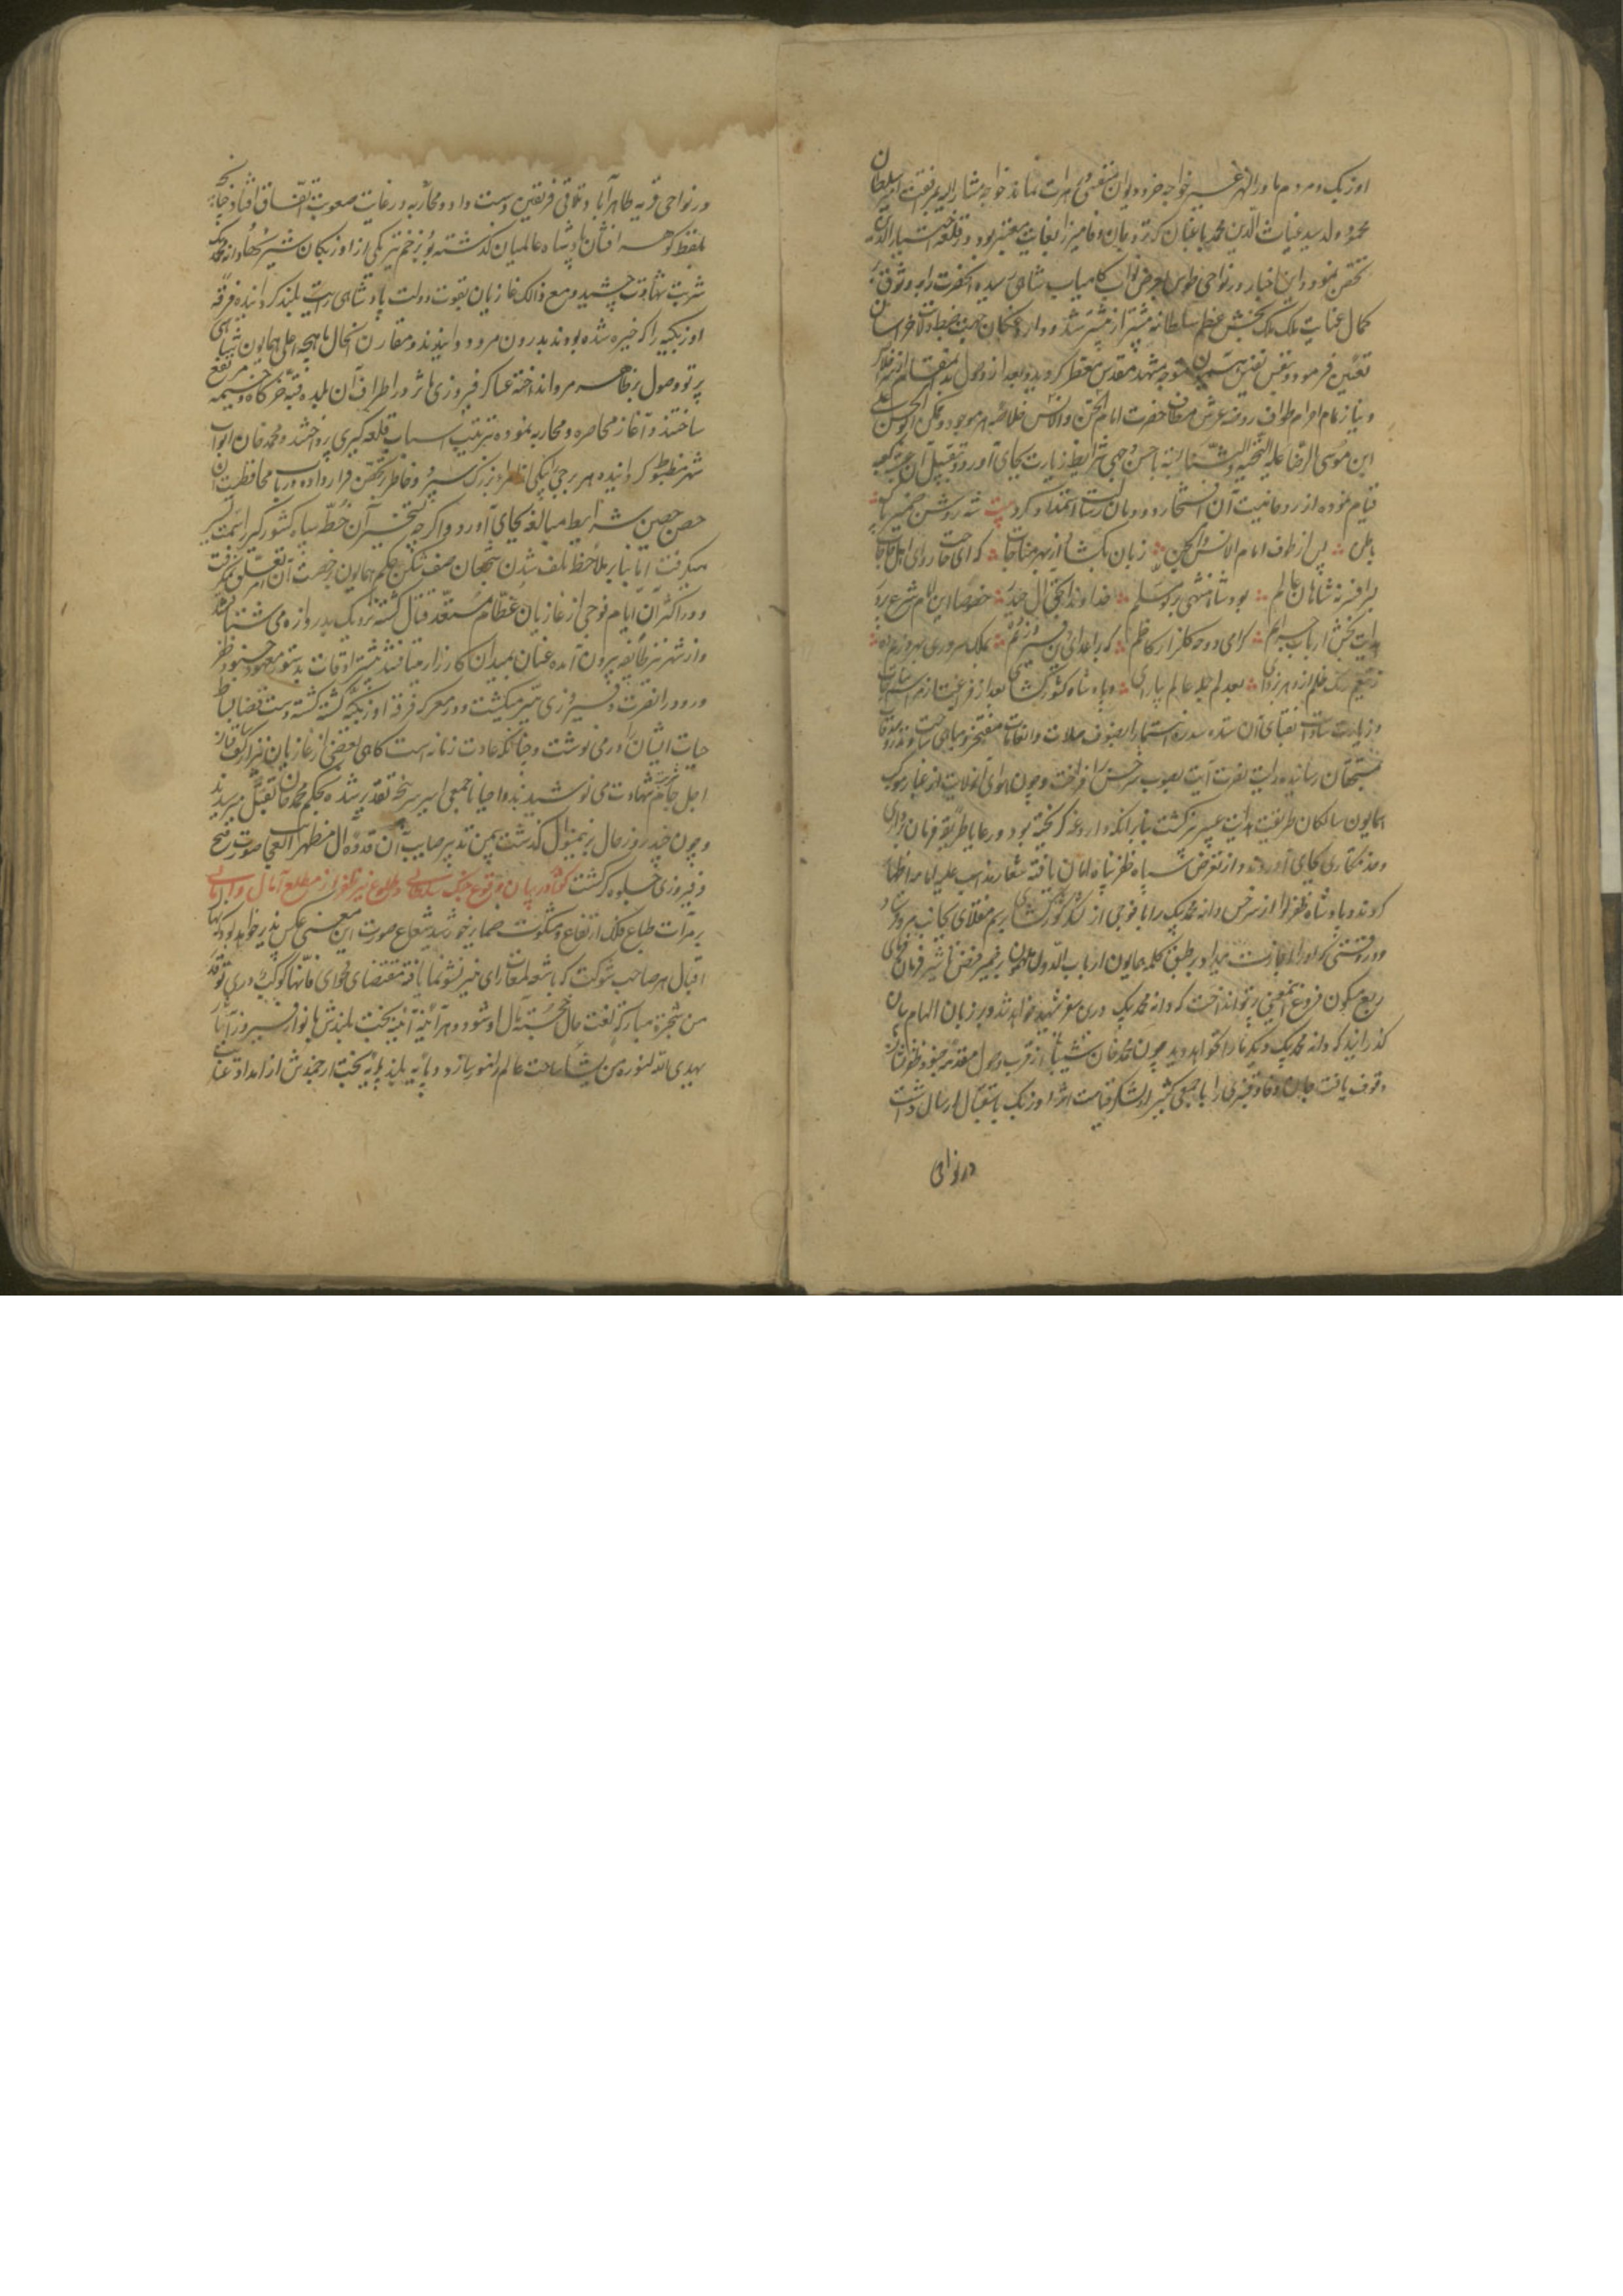 اوزبک و مردم ماوراالنهر غیر خواجه خرد دیوان متنفسی در هرات نماند خواجه مشار الیه برفقت امیر سلطان
محمود ولد سید غیاث الدین محمد باغبان که نزد جان وفا میرزا بغایت معتبر بود در قلعه اختیارالدین
تحصن نمود و این اخبار در نواحی طوس بعرض نواب کامیاب شاهی رسیده آنحضرت را به وثوق
کمال عنایت ملک ملک بخش عظم سلطانه بیشتر از پیشتر شد و داروغگان جهت ضبط ولایت خراسان
تعیین فرموده و بنفس نفیس متوجه مشهد مقدس معطر گردید و بعد از وصول بدان مقام از سر اخلاص
و نیاز تمام احرام طواف روضه عرش مطاف حضرت امام الجن والانس خلاصه هر موجود و ممکن ابوالحسن علی
ابن موسی الرضا علیه التحیة و الثنا بسته باحسن وجهی شرایط زیارت بجای آورد و بتقبیل آن عتبه کعبه
قیام نموده از روحانیت آن افتخار دودمان رسالت استمداد کرد بیت شه روشن ضمیر پاک
باطن پس از طوف امام الانس والجن زبان بگشاد از بهر مناجات که ای حاجت روای اهل حاجات
برافرازنده شاهان عالم بود شاهنشهی بر تو مسلم خداوندا بحق آل حیدر خصوصا این امام شرع پرور
هدایت بخش ارباب مراحم گرامی دوحه گلزار کاظم که بر اعدای دین فیروزیم ده بملک سروری بهروزیم ده
ز تیغم زنگ ظلم از دهر بزدای بعدلم جمله عالم بیارای و پادشاه کشورگشای بعد از فراغت از مراسم مناجات
و زیارت سادات نقبای آن سده سدره انتما را بصنوف صلات و انعامات مفتخر و مباهی ساخت و نذورات
بمستحقان رسانیده رایت نصرت آیت بصوب سرخس برافراخت و چون هوای آن ولایت از غبار موکب
همایون سالکان طریقت هدایت عبیر بیز گشت بنابر آنکه داروغه گریخته بود رعایا طریق فرمان برداری
و خدمتکاری بجای آوردند و از تعرض سپاه ظفر پناه امان یافته شعار مذهب علیه امامیه اظهار
کردند و پادشاه ظفر لوا از سرخس دانه محمد بیک را با فوجی از لشکر کشورگشای برسم منقلای بجانب مرو فرستاد
و در وقتی که او را اجازت میداد بر طبق کلمه همایون ارباب الدول ملهمون بر ضمیر فیض تأثیر فرمان فرمای
ربع مسکون فروغ اینمعنی پرتو انداخت که دانه محمد بیک درین سفر شهید خواهد شد و بر زبان الهام بیان
گذرانید که دانه محمد بیک دیگر ما را نخواهد دید چون محمد خان شیبانی از قرب وصول مقدمه جنود ظفر نشان
وقوف یافت جان وفا و قنبر بی را با جمعی کثیر از لشکر قیامت اثر اوزبک باستقبال ارسال داشت
در نواحی
در نواحی قریه طاهرآباد تلاقی فریقین دست داد و محاربه در غایت صعوبت اتفاق افتاد چنانچه
بلفظ گوهر افشان پادشاه عالمیان گذشته بود بزخم تیر یکی از اوزبکان شریر دانه محمد بیک
شربت شهادت چشید و مع ذالک غازیان بقوت دولت پادشاهی رایت بلند گردانیده فرقه
اوزبکیه را که خیره شده بودند بدرون مرو دوانیدند و مقارن آنحال ماهچه اعلی همایون شاهی
پرتو وصول بر ظاهر مرو انداخته عساکر فیروزی مآثر در اطراف آن بلده قبه خرگاه و خیمه مرتفع
ساختند و آغاز محاصره و محاربه نموده بترتیب اسباب قلعه گیری پرداختند و محمد خان ابواب
شهر مضبوط گردانیده هر برجی بیکی از امراء بزرگ سپرد و خاطر بر تحصن قرار داده در باب محافظت آن
حصن حصین شرایط مبالغه بجای آورد و اگرچه تسخیر آن خطه سپاه کشورگیر را بسهولت میسر
میگرفت اما بنابر ملاحظه تلف شدن شجعان صف شکن حکم همایون برخصت آن امر تعلق نمیگرفت
و در اکثر آن ایام فوجی از غازیان عظام مستعد قتال گشته نزدیک بدروازه می شتافتند
و از شهر نیز طایفه بیرون آمده عنان بمیدان کارزار میتافتند بیشتر اوقات بدستور معهود جنود ظفر
ورود را نصرت و فیروزی میسر میگشت و در معرکه فرقه اوزبکیه کشته گشته دست قضا بساط
حیات ایشان را در می نوشت و چنانکه عادت زمانه است گاهی بعضی از غازیان نیز از کف ساقی
اجل جام شهادت می نوشیدند و احیانا جمعی اسیر سرپنجه تقدیر شده بحکم محمد خان بقتل میرسیدند
و چون چند روز حال برینمنوال گذشت بیمن تدبیر صایب آن قدوه آل مظهر العجایب صورت فتح
و فیروزی جلوه گر گشت گفتار در بیان وقوع جنگ سلطانی و طلوع نیر ظفر از مطلع آمال و امانی
بر مرآت طباع فلک ارتفاع و مشکوة ضمایر خورشید شعاع صورت این معنی عکس پذیر خواهد بود که نهال
اقبال هر صاحب شوکت که باشعه لمعات رای منیر نشو و نما یافته بمقتضای فحوای فانها کوکب دری توقد
من شجرة مبارکة نعت حال خجسته مآل او شود و هر آینه آیینه بخت بلندش بانوار فیروز آثار
یهدی الله لنوره من یشاء ساحت عالم را منور سازد و پایه بلند پایه بخت ارجمندش از امداد عنایت